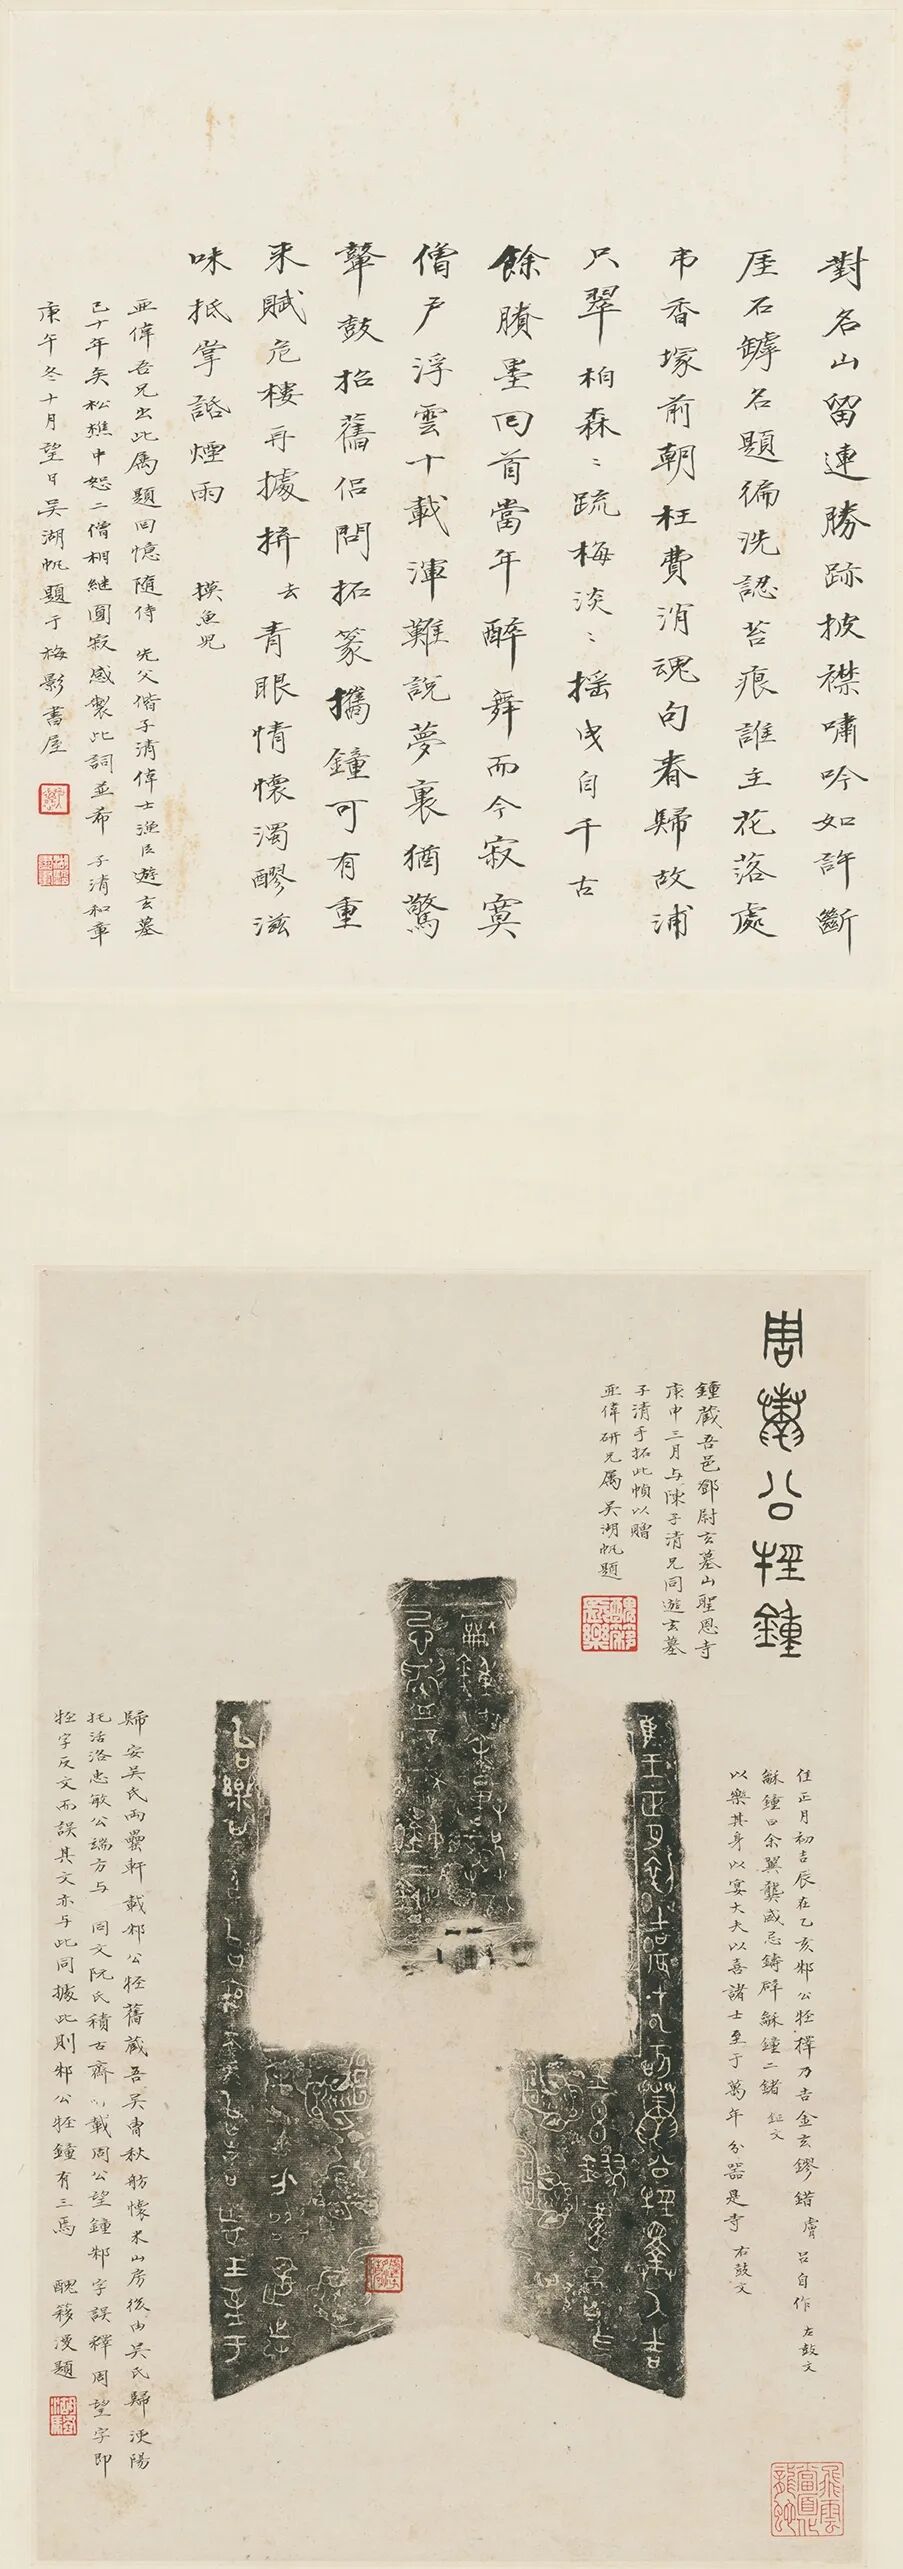 對名山留連勝跡披襟嘯吟如許斷
厓石罅名題徧洗認苔痕誰主花落處
帀香塚前朝枉費消魂句春歸故浦
只翠柏森〻疏梅淡〻摇曳自千古
餘賸墨回首當年醉舞而今寂寞
僧户浮雲十載渾難說夢裏猶驚
鼙鼓招舊侣問拓篆攜鐘可有重
来賦危樓再據拚去青眼情懷濁醪滋
味抵掌話煙雨 摸魚兒
亚偉吾兄出此屬題回憶隨侍 先父偕子清偉士漁臣遊玄墓
已十年矣松樵中恕二僧相継圓寂感製此詞並希 子清和章
庚午冬十月望日吴湖帆題于梅影書屋
周邾公牼鐘
鐘蔵吾邑鄧尉玄墓山聖恩寺
庚申三月与陳子清兄同遊玄墓
子清手拓此幀以贈
亚偉研兄属 吴湖帆題
隹正月初吉辰在乙亥邾公牼擇乃吉金玄鏐錯膚吕自作 左鼓文
龢鐘曰余翼龔威忌鋳辝龢鐘二鍺 鉦文
以樂其身以宴大夫以喜諸士至于萬年 分器是寺 右鼓文
歸安吴氏兩罍軒載邾公牼舊蔵吾吴曹秋舫懷米山房後由吴氏歸溧陽
托活洛忠敏公端方与同文阮氏積古齋所載周公望鐘邾字誤釋周望字即
牼字反文而誤其文亦与此同據此則邾公牼鐘有三焉 醜簃漫題